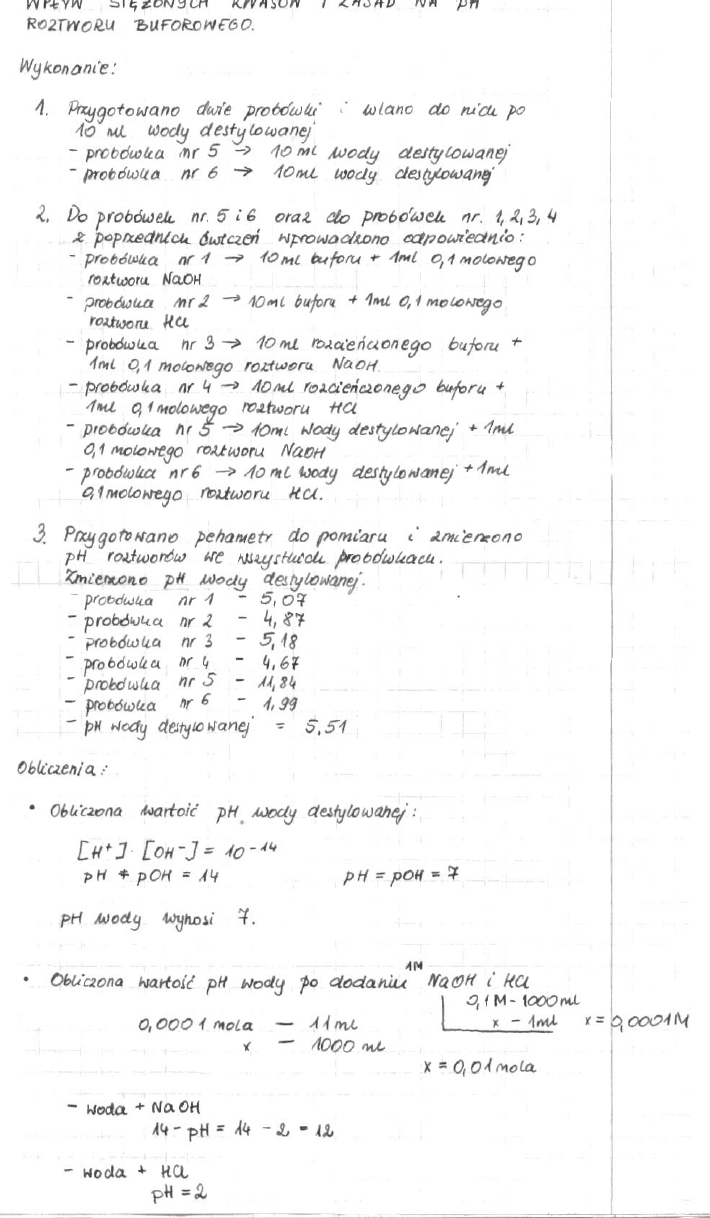 WPŁYW STĘŻONYCH KWASÓW I ZASAD NA pH
ROZTWORU BUFOROWEGO.
Wykonanie:
1. Przygotowano dwie probówki i wlano do nich po
10 ml wody destylowanej
- probówka nr 5 → 10 ml wody destylowanej
- probówka nr 6 → 10 ml wody destylowanej
2. Do probówek nr. 5 i 6 oraz do probówek nr. 1, 2, 3, 4
z poprzednich ćwiczeń wprowadzono odpowiednio:
- probówka nr 1 → 10 ml buforu + 1ml 0,1 molowego
roztworu NaOH
- probówka nr 2 → 10 ml buforu + 1ml 0,1 molowego
roztworu HCl
- probówka nr 3 → 10 ml rozcieńczonego buforu +
1ml 0,1 molowego roztworu NaOH.
- probówka nr 4 → 10 ml rozcieńczonego buforu +
1ml 0,1 molowego roztworu HCl
- probówka nr 5 → 10ml wody destylowanej + 1ml
0,1 molowego roztworu NaOH
- probówka nr 6 → 10 ml wody destylowanej + 1ml
0,1 molowego roztworu HCl.
3. Przygotowano pehametr do pomiaru i zmierzono
pH roztworów we wszystkich probówkach.
Zmierzono pH wody destylowanej.
- probówka nr 1 - 5,07
- probówka nr 2 - 4,87
- probówka nr 3 - 5,18
- probówka nr 4 - 4,67
- probówka nr 5 - 11,84
- probówka nr 6 - 1,99
- pH wody destylowanej = 5,51
Obliczenia:
• Obliczona wartość pH wody destylowanej:
[H⁺]·[OH⁻] = 10⁻¹⁴
pH + pOH = 14 pH = pOH = 7
pH wody wynosi 7.
• Obliczona wartość pH wody po dodaniu 1M NaOH i HCl
0,1M - 1000 ml
0,0001 mola — 11 ml x - 1ml x = 0,0001M
x — 1000 ml
x = 0,01 mola
- woda + NaOH
14 - pH = 14 - 2 = 12
- woda + HCl
pH = 2